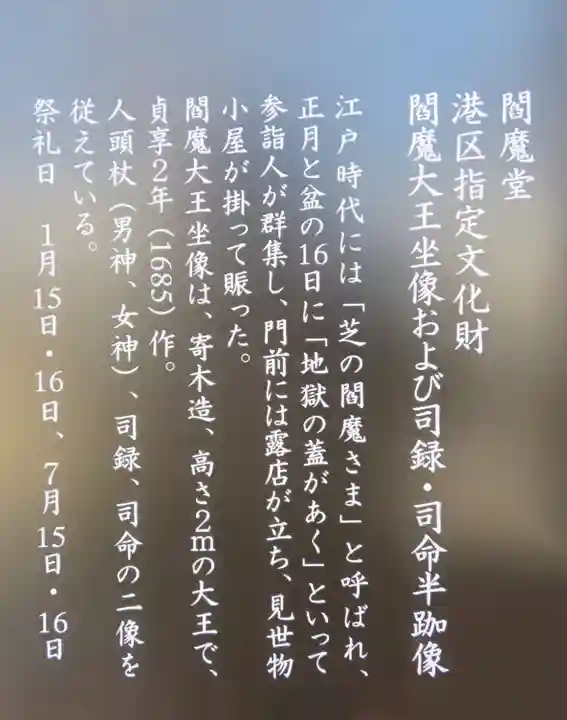 閻魔堂
港区指定文化財
閻魔大王坐像および司録・司命半跏像
江戸時代には「芝の閻魔さま」と呼ばれ、
正月と盆の16日に「地獄の蓋があく」といって
参詣人が群集し、門前には露店が立ち、見世物
小屋が掛って賑った。
閻魔大王坐像は、寄木造、高さ2mの大王で、
貞享2年（1685）作。
人頭杖（男神、女神）、司録、司命の二像を
従えている。
祭礼日　1月15日・16日、7月15日・16日